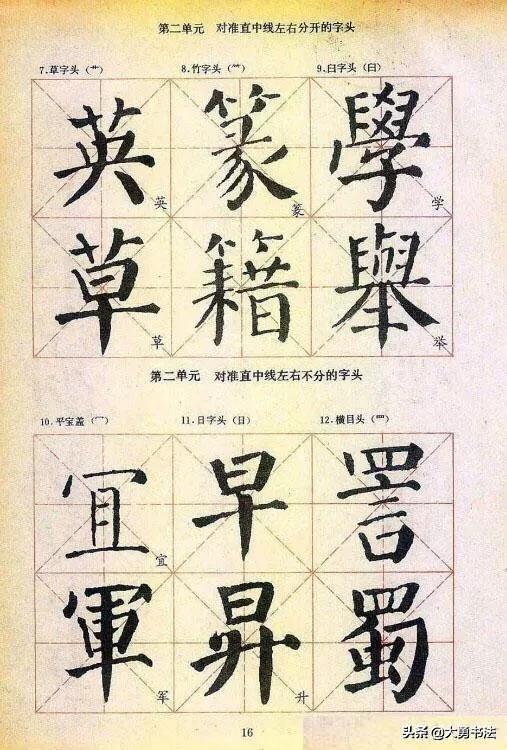 第二单元 对准直中线左右分开的字头
7.草字头（艹） 8.竹字头（⺮） 9.臼字头（臼）
英 英 篆 篆 學 学
草 草 籍 舉 举
第二单元 对准直中线左右不分的字头
10.平宝盖（冖） 11.日字头（日） 12.横目头（罒）
冝 宜 早 詈
軍 军 昇 升 蜀
16
头条 @大勇书法